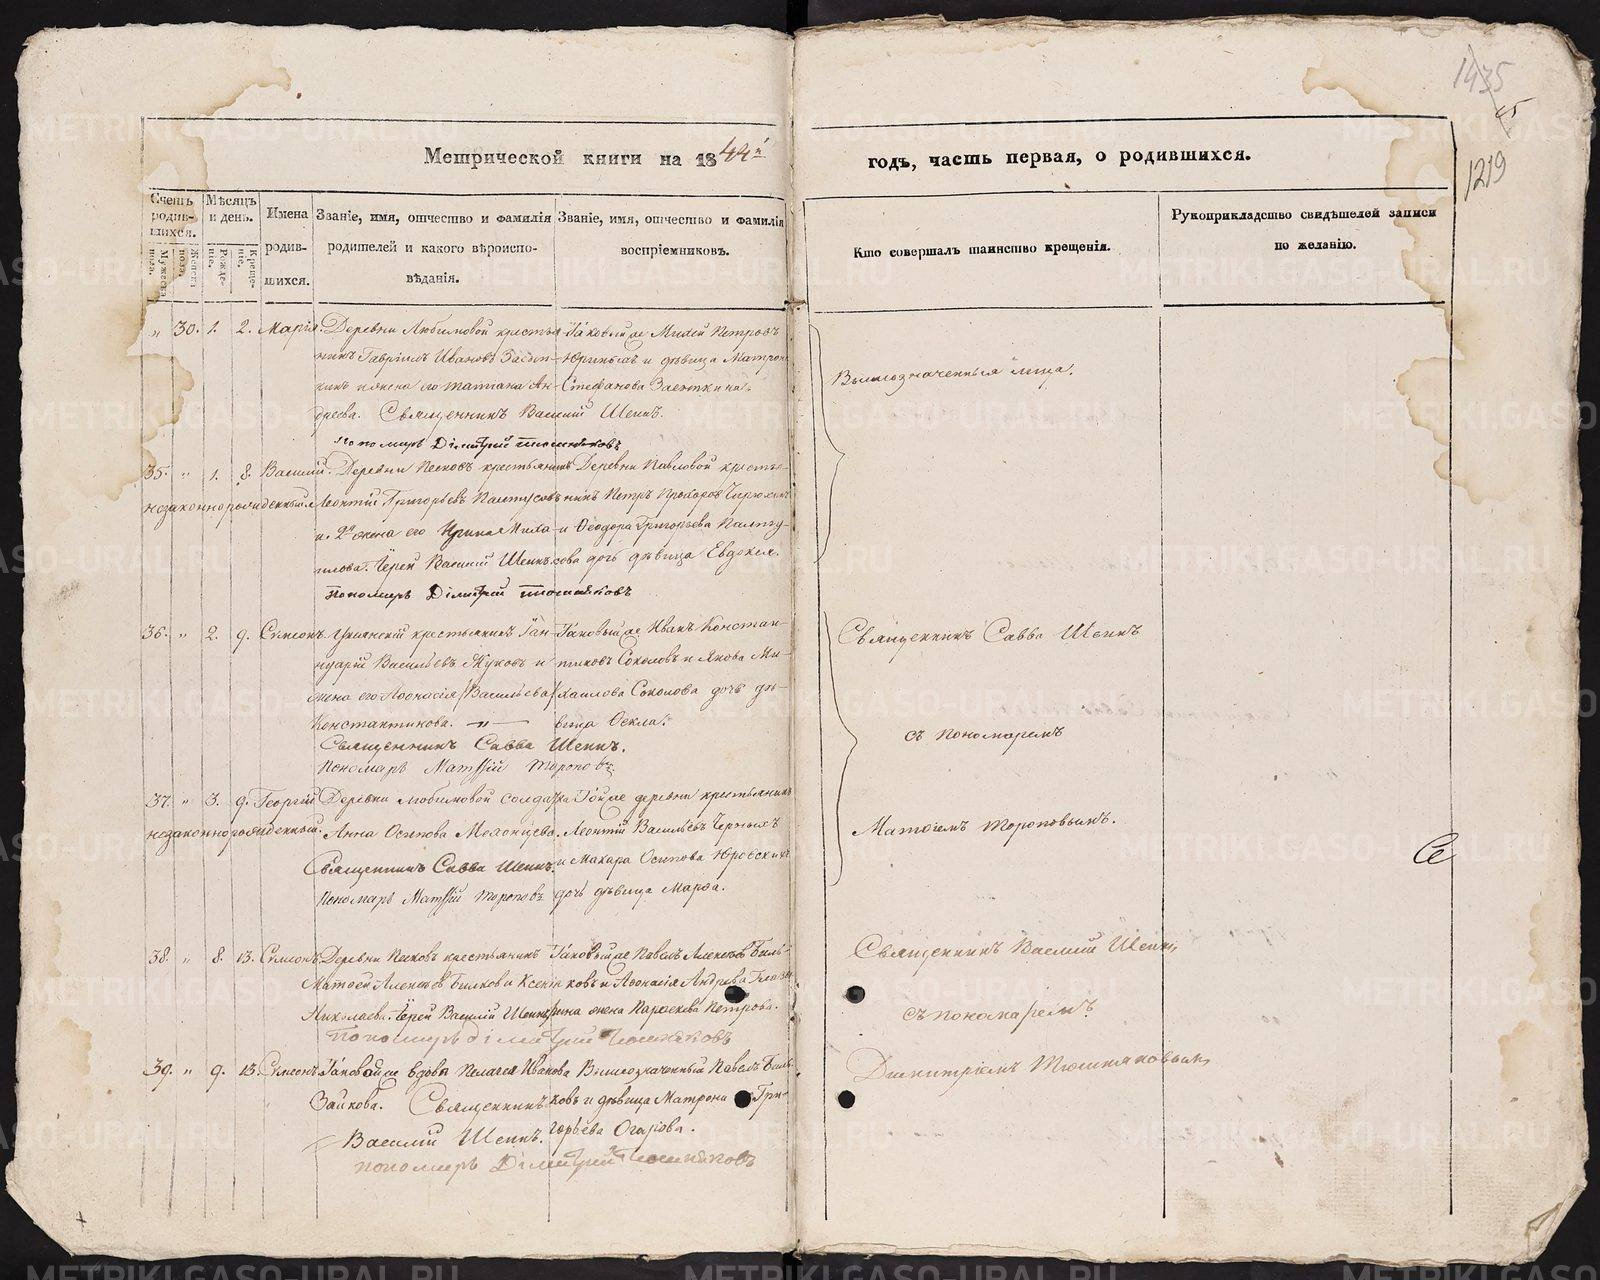 1435
1219
Метрической книги на 1844й годъ, часть первая, о родившихся.
Счетъ родив-шихся.
Мужеска пола.
Женска пола.
Мѣсяцъ и день.
Рожде-ніе.
Креще-ніе.
Имена родив-шихся.
Званіе, имя, отчество и фамилія
родителей и какого вѣроиспо-
вѣданія.
Званіе, имя, отчество и фамилія
воспріемниковъ.
Кто совершалъ таинство крещенія.
Рукоприкладство свидѣтелей записи
по желанію.
" 30. 1. 2. Марія. Деревни Любимовой крестья-
нинъ Гавріилъ Ивановъ
жена его Татіана Ан-
дреева. Священникъ Василій Шеинъ.
Пономарь Димитрій
Таковыйже Михей Петровъ
и дѣвица Матрона
Стефанова
Вышеозначенныя лица.
35. " 1. 8. Василій. Деревни Песковъ крестьянинъ
незаконнорожденный Леонтій Григорьевъ Палтусовъ
и 2я жена его Ирина Миха-
илова. Іерей Василій Шеинъ.
Пономарь Димитрій
Деревни Павловой крестья-
нинъ Петръ Прохоровъ
и Ѳеодора Григорьева Палту-
сова дочь дѣвица Евдокія.
36. " 2. 9. Сѵмеонъ. крестьянинъ Іан-
нуарій Васильевъ Жуковъ и
жена его Аѳанасія /Васильева/
Константинова. — " —
Священникъ Савва Шеинъ.
Пономарь Матѳій Тороповъ.
Таковыйже Иванъ Констан-
тиновъ Соколовъ и Якова Ми-
хаилова Соколова дочь дѣ-
вица Ѳекла.
Священникъ Савва Шеинъ
съ пономаремъ
Матѳіемъ Тороповымъ.
37. " 3. 9. Георгій Деревни Любимовой солдатка
незаконнорожденный. Анна Осипова Мехонцева.
Священникъ Савва Шеинъ.
Пономарь Матѳій Тороповъ
Тойже деревни крестьянинъ
Леонтій Васильевъ Черныхъ
и Макара Осипова Юровскихъ
дочь дѣвица Марѳа.
38. " 8. 13. Сѵмеонъ Деревни Песковъ крестьянинъ
Матѳей Алексѣевъ и Ксенія
Николаева. Іерей Василій Шеинъ
Пономарь Димитрій
Таковыйже Павелъ Алексѣевъ
ковъ и Аѳанасія Андреева
жена Параскева Петрова.
Священникъ Василій Шеинъ
съ пономаремъ
Димитріемъ Тюшняковымъ
39. " 9. 13. Сѵмеонъ Таковойже вдова Пелагея Иванова
Зайкова. Священникъ
Василій Шеинъ.
Пономарь Димитрій
Вышеозначенный Павелъ
ковъ и дѣвица Матрона Гри-
горьева Огарова.